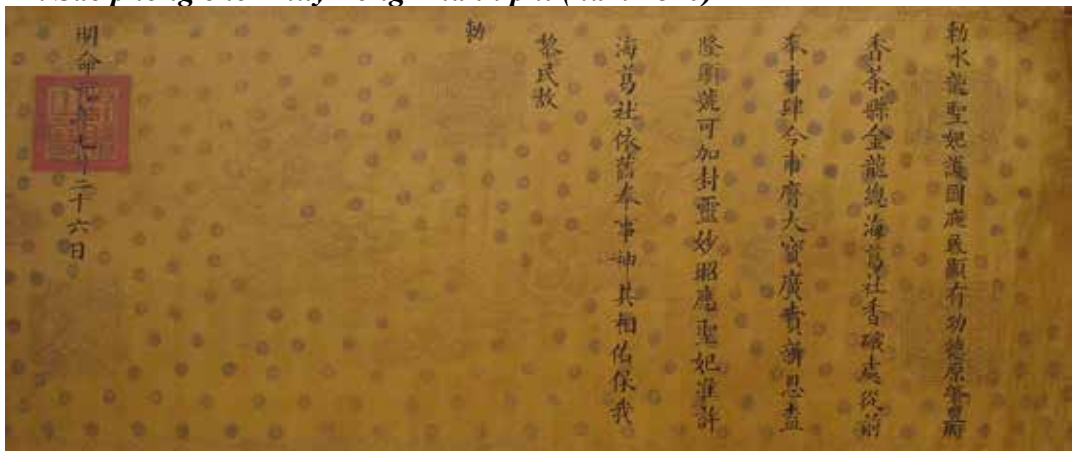 勅水龍聖妃護國庇民顯有功德原肇豐府
香茶縣金龍總海葛社香碗處從前
奉事肆今膺大寶廣賁新恩盍
隆顯號可加封靈妙昭應聖妃準許
海葛社依舊奉事神其相佑保我
黎民故
勅
明命七二十六日